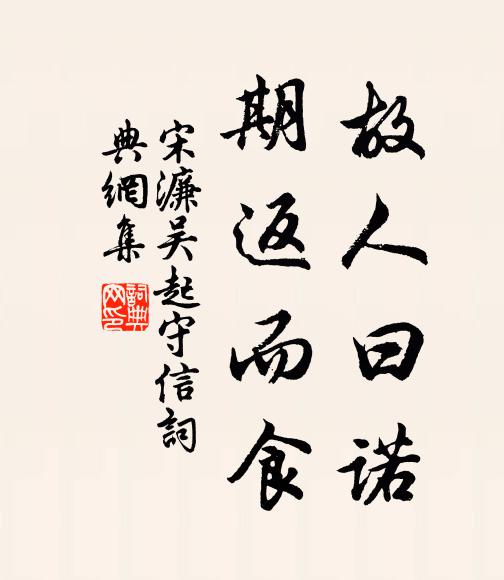 故人曰诺
期返而食
宋濂吴起守信詞
典網集
詞典網印